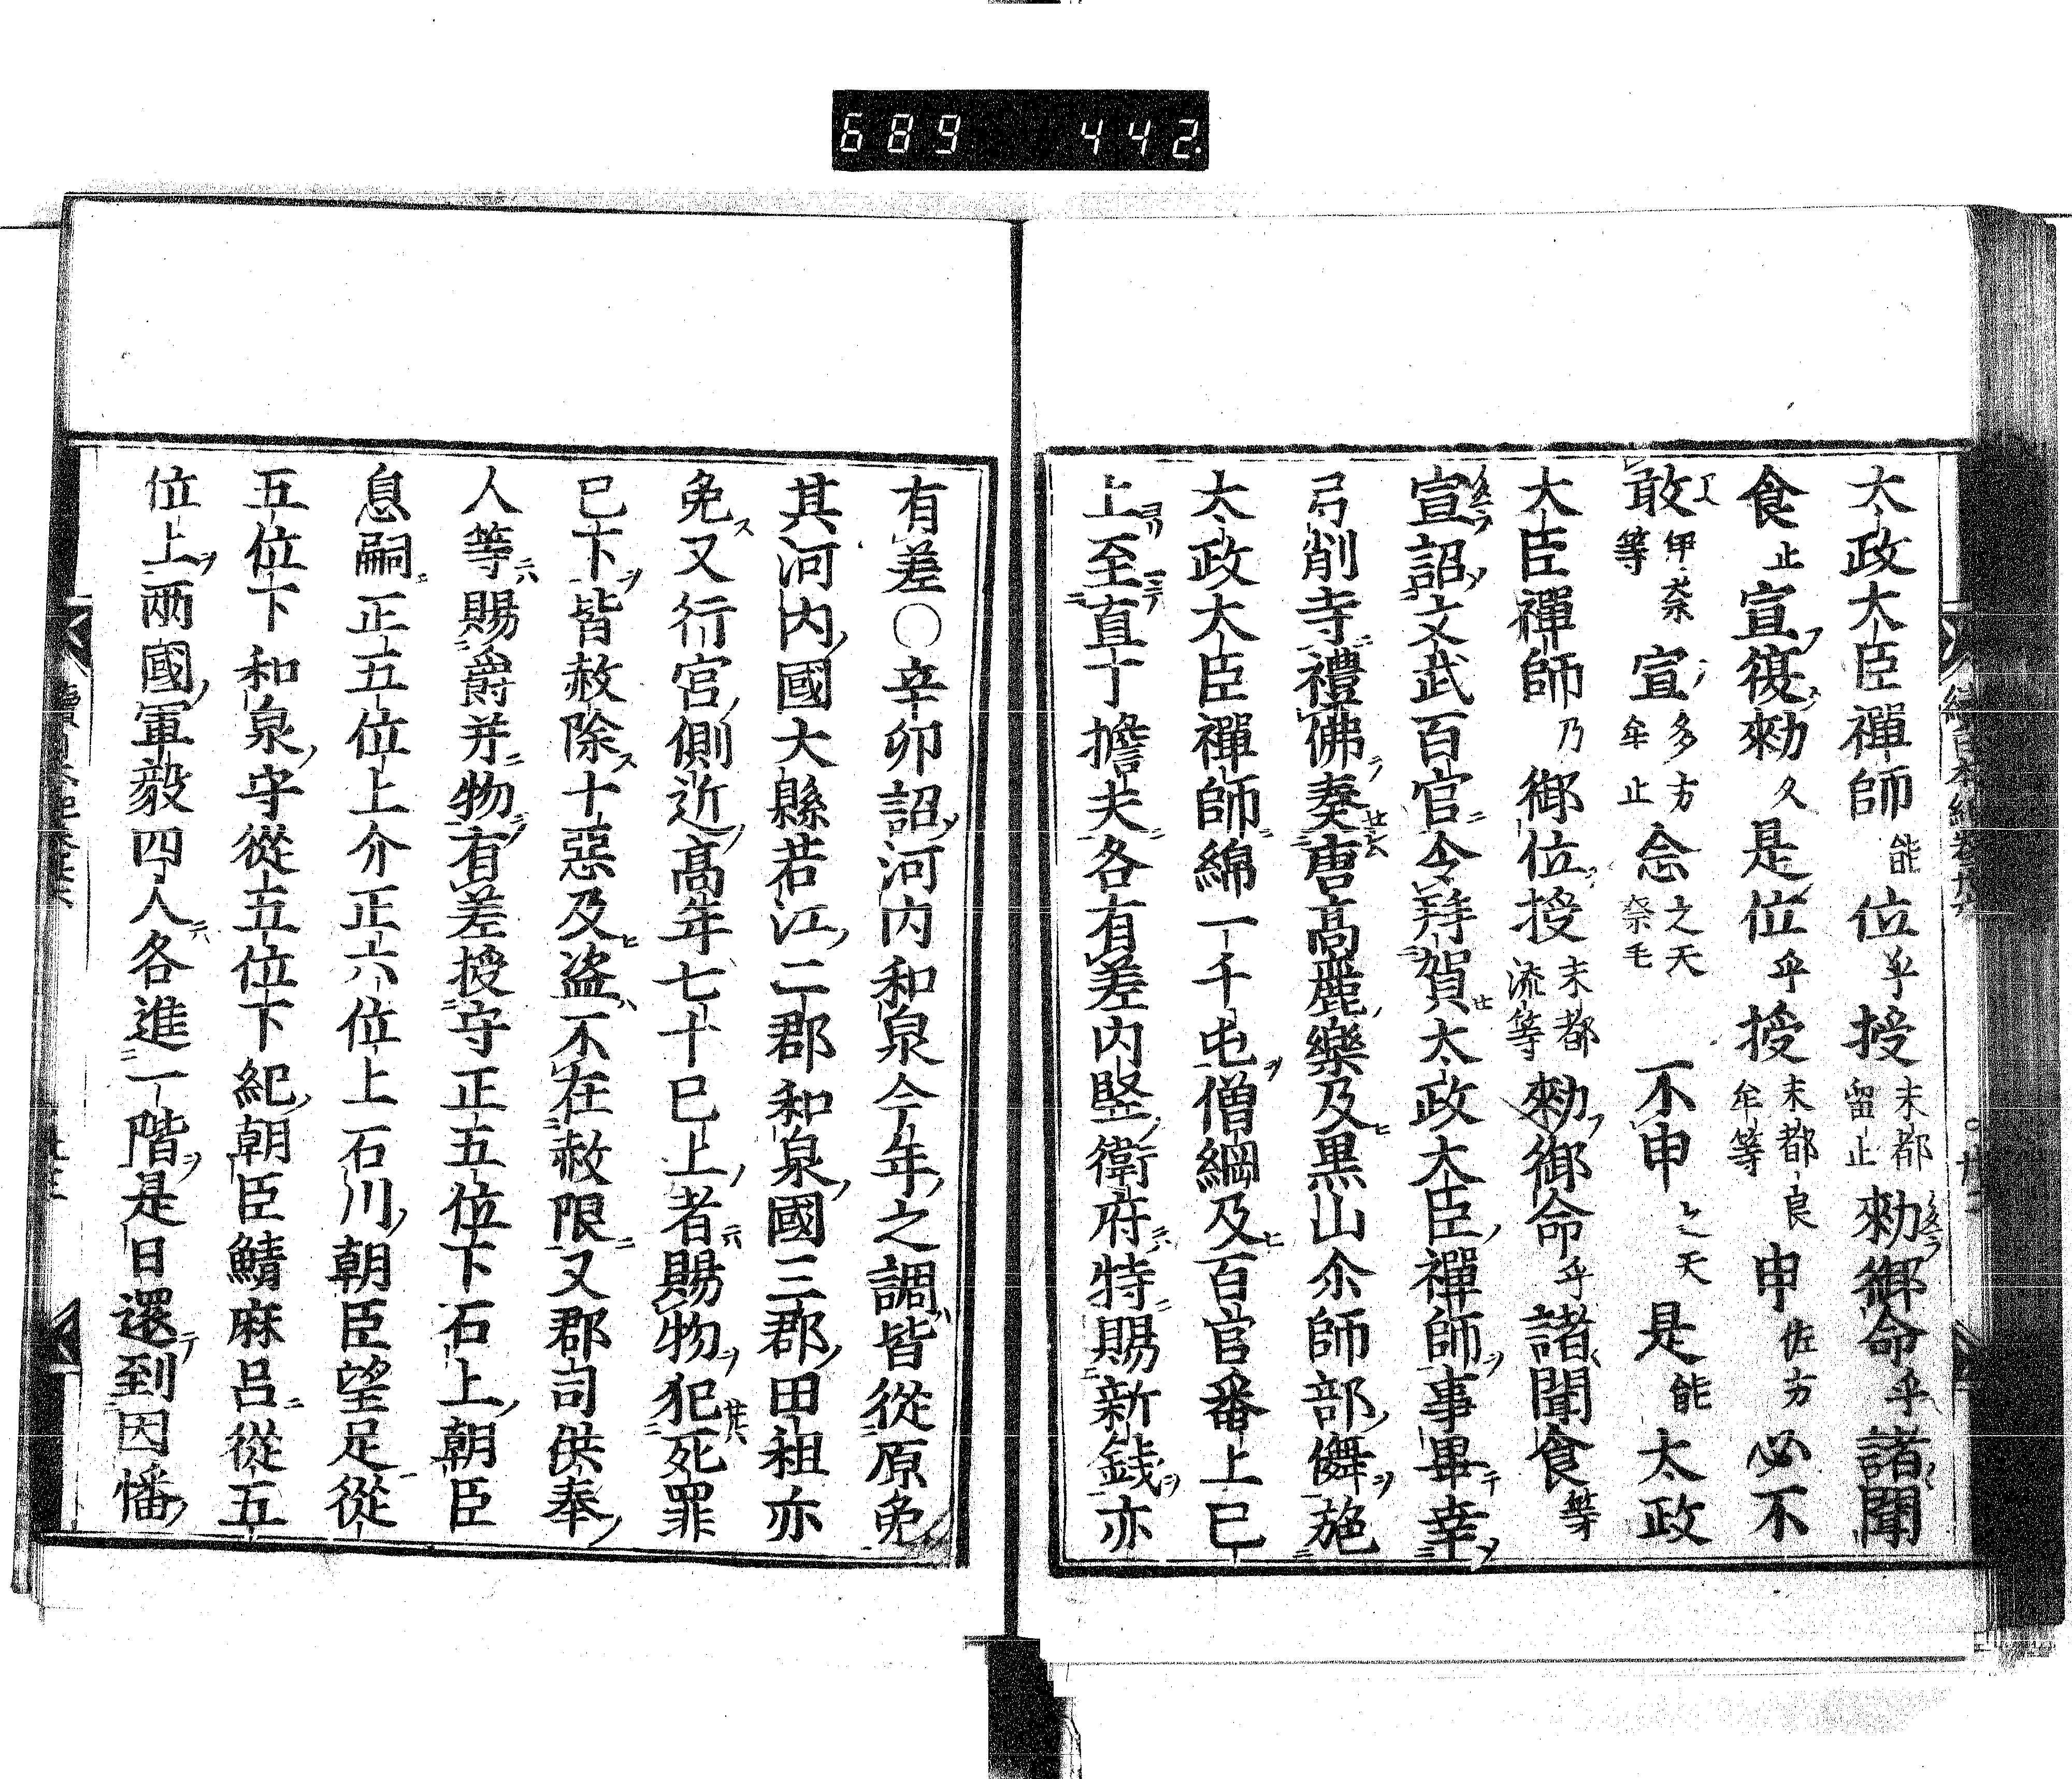 689 442
太政大臣禪師能位乎授末都留止勑御命乎諸聞
食止宣復勑久是位乎授末都良牟等申佐方必不
敢伊奈等宣多方牟止念之天奈毛不申之天是能太政
大臣禪師乃御位授末都流等勑御命乎諸聞食等
宣詔文武百官令拜賀太政大臣禪師事畢幸
弓削寺禮佛奏唐高麗樂及黒山企師部儛施
太政大臣禪師綿一千屯僧綱及百官番上已
上至直丁擔夫各有差内竪衛府特賜新錢亦
有差〇辛卯詔河内和泉今年之調皆從原免
其河内國大縣若江二郡和泉國三郡田租亦
免又行宮側近高年七十已上者賜物犯死罪
已下皆赦除十惡及盗不在赦限又郡司供奉
人等賜爵并物有差授守正五位下石上朝臣
息嗣正五位上介正六位上石川朝臣望足從
五位下和泉守從五位下紀朝臣鯖麻呂從五
位上两國軍毅四人各進一階是日還到因幡